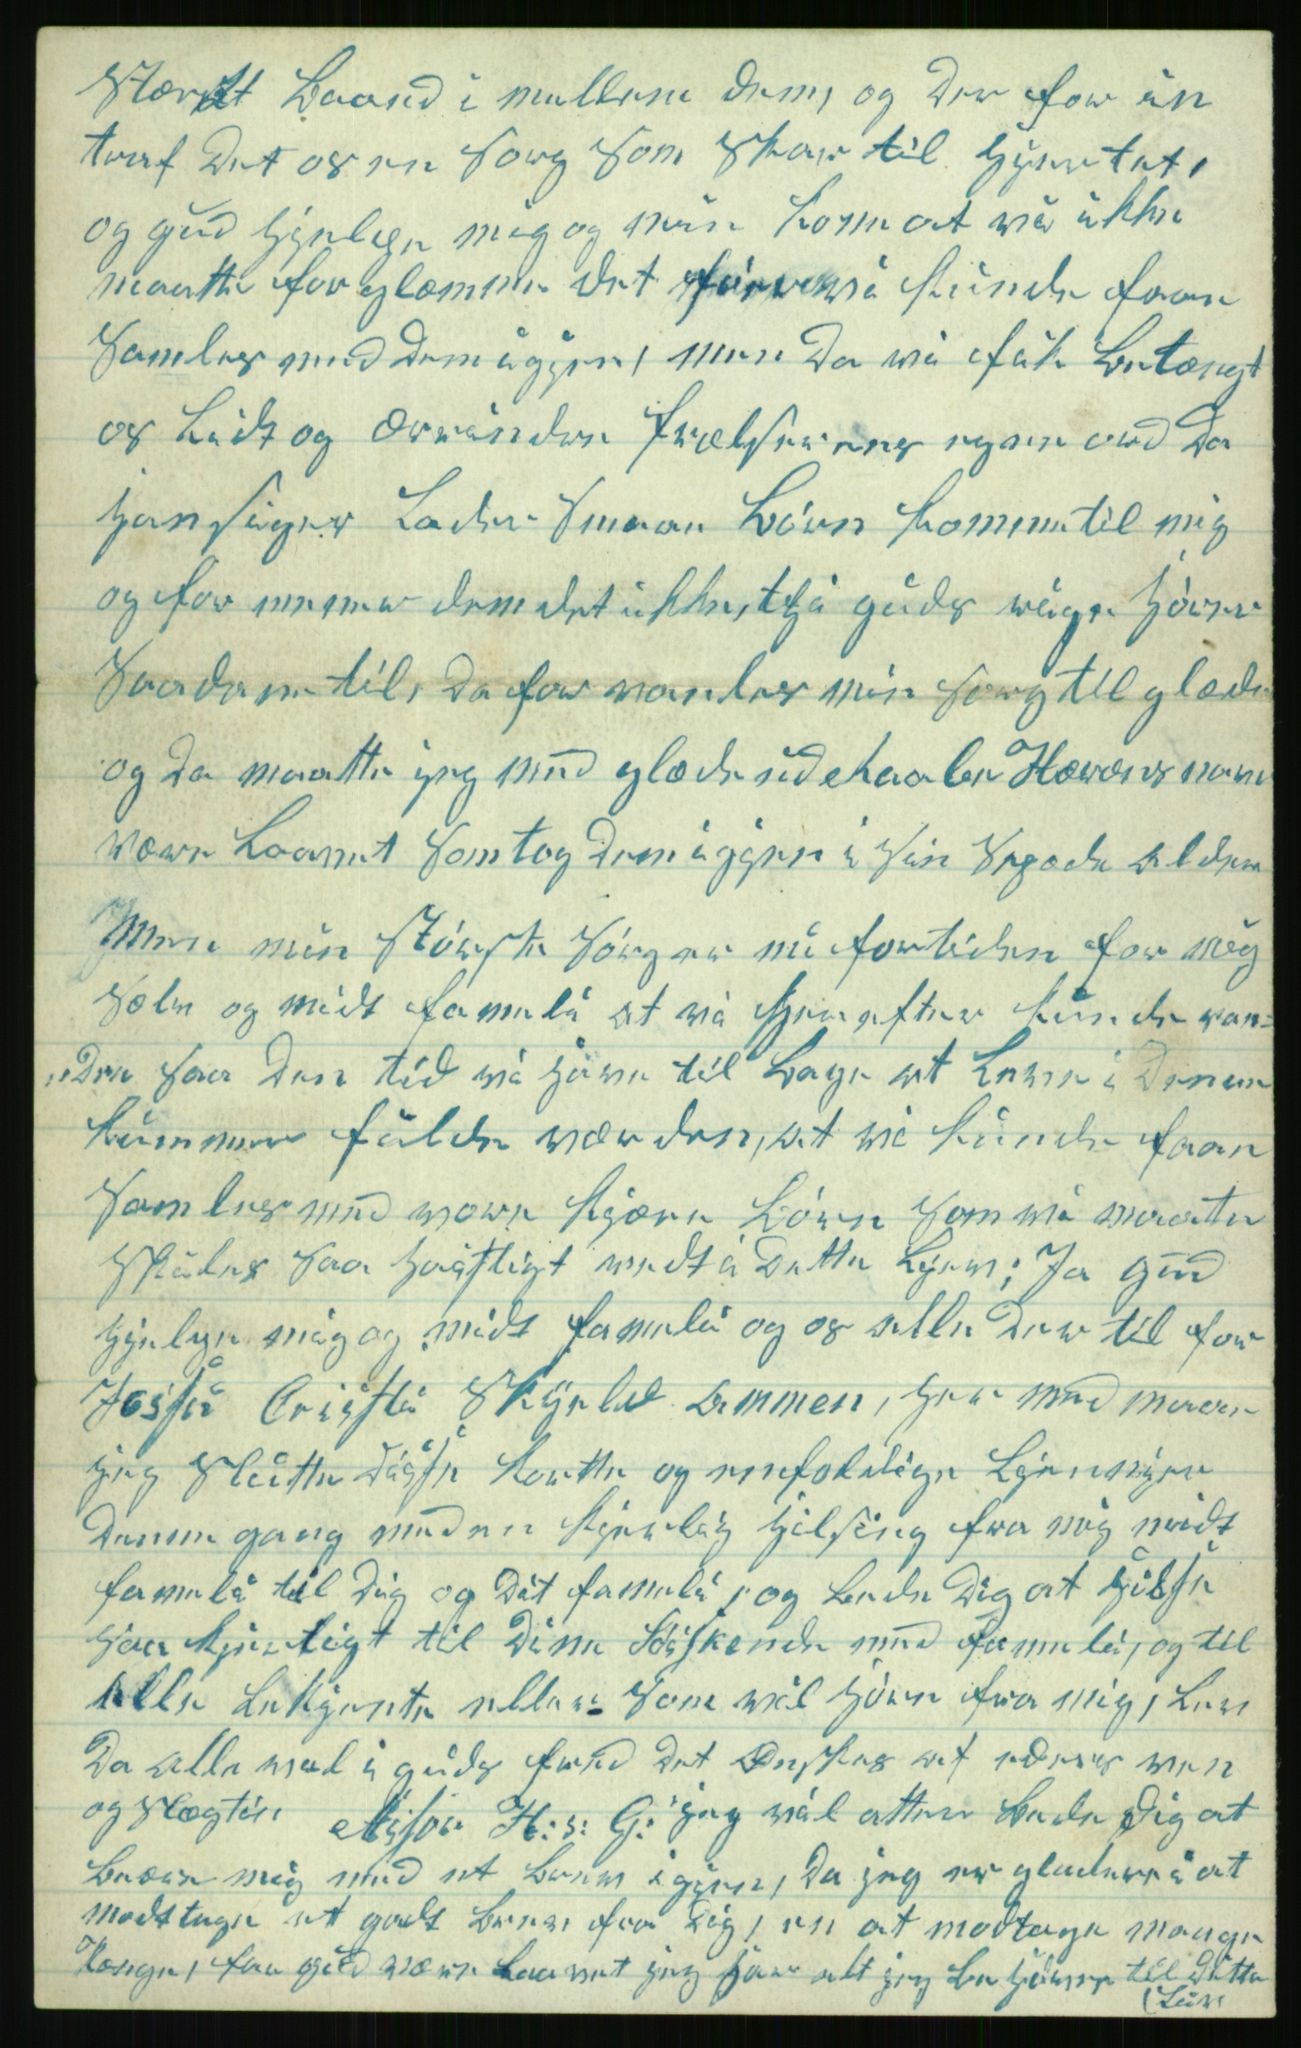 Stærkt Baand i mellem dem, og der for in
traf Det os en Sorg Som Skar til hjertet,
og gud hjelpe mig og min kone at vi ikke
maatte for glemme det før vi kunde faa
Samles med dem igjen, men da vi fik betængt
os lidt og Erindre frælserens egne ord Da
han siger Lader Smaa børn komme til mig
og for mener dem det ikke, thi guds rige hører
Saadane til, da for vanles min Sorg til glæde
og da maatte jeg med glæde ud raabe Hærens navn
være Laavet Som tog dem igjen i Sin Spæde alder
Men min Største Sorg er nu fortiden for mig
Selv og midt famili at vi her efter kunde van=
dre Saa den tid vi have til bage at Leve i denne
kummer fulde værden, at vi kunde faa
Samles med vore kjære børn Som vi maatte
Skiles Saa hastigt vedt i dette Liv; Ja gud
hjelpe mig og midt famili og os alle der til for
Jesu Cristi Skyld ammen, her med maa
jeg Slutte disse korte og enfoldige Lienyer
denne gang med en kjerlig hilsing fra mig midt
famili til dig og dit famili, og bede dig at hilse
Saa kjerligt til dine Søskende med famili, og til
alle bekjente ellers Som vil høre fra mig, Lev
da alle vel i guds fred det Ønskes af eders ven
og Slægtin H: S: G: jeg vil atter bede dig at
beære mig med et brev igjen, da jeg er gladere i at
modtage et godt brev fra dig, en at modtage mange
Penge, for gud være Laavet jeg har alt jeg behøver til dette
(Liv